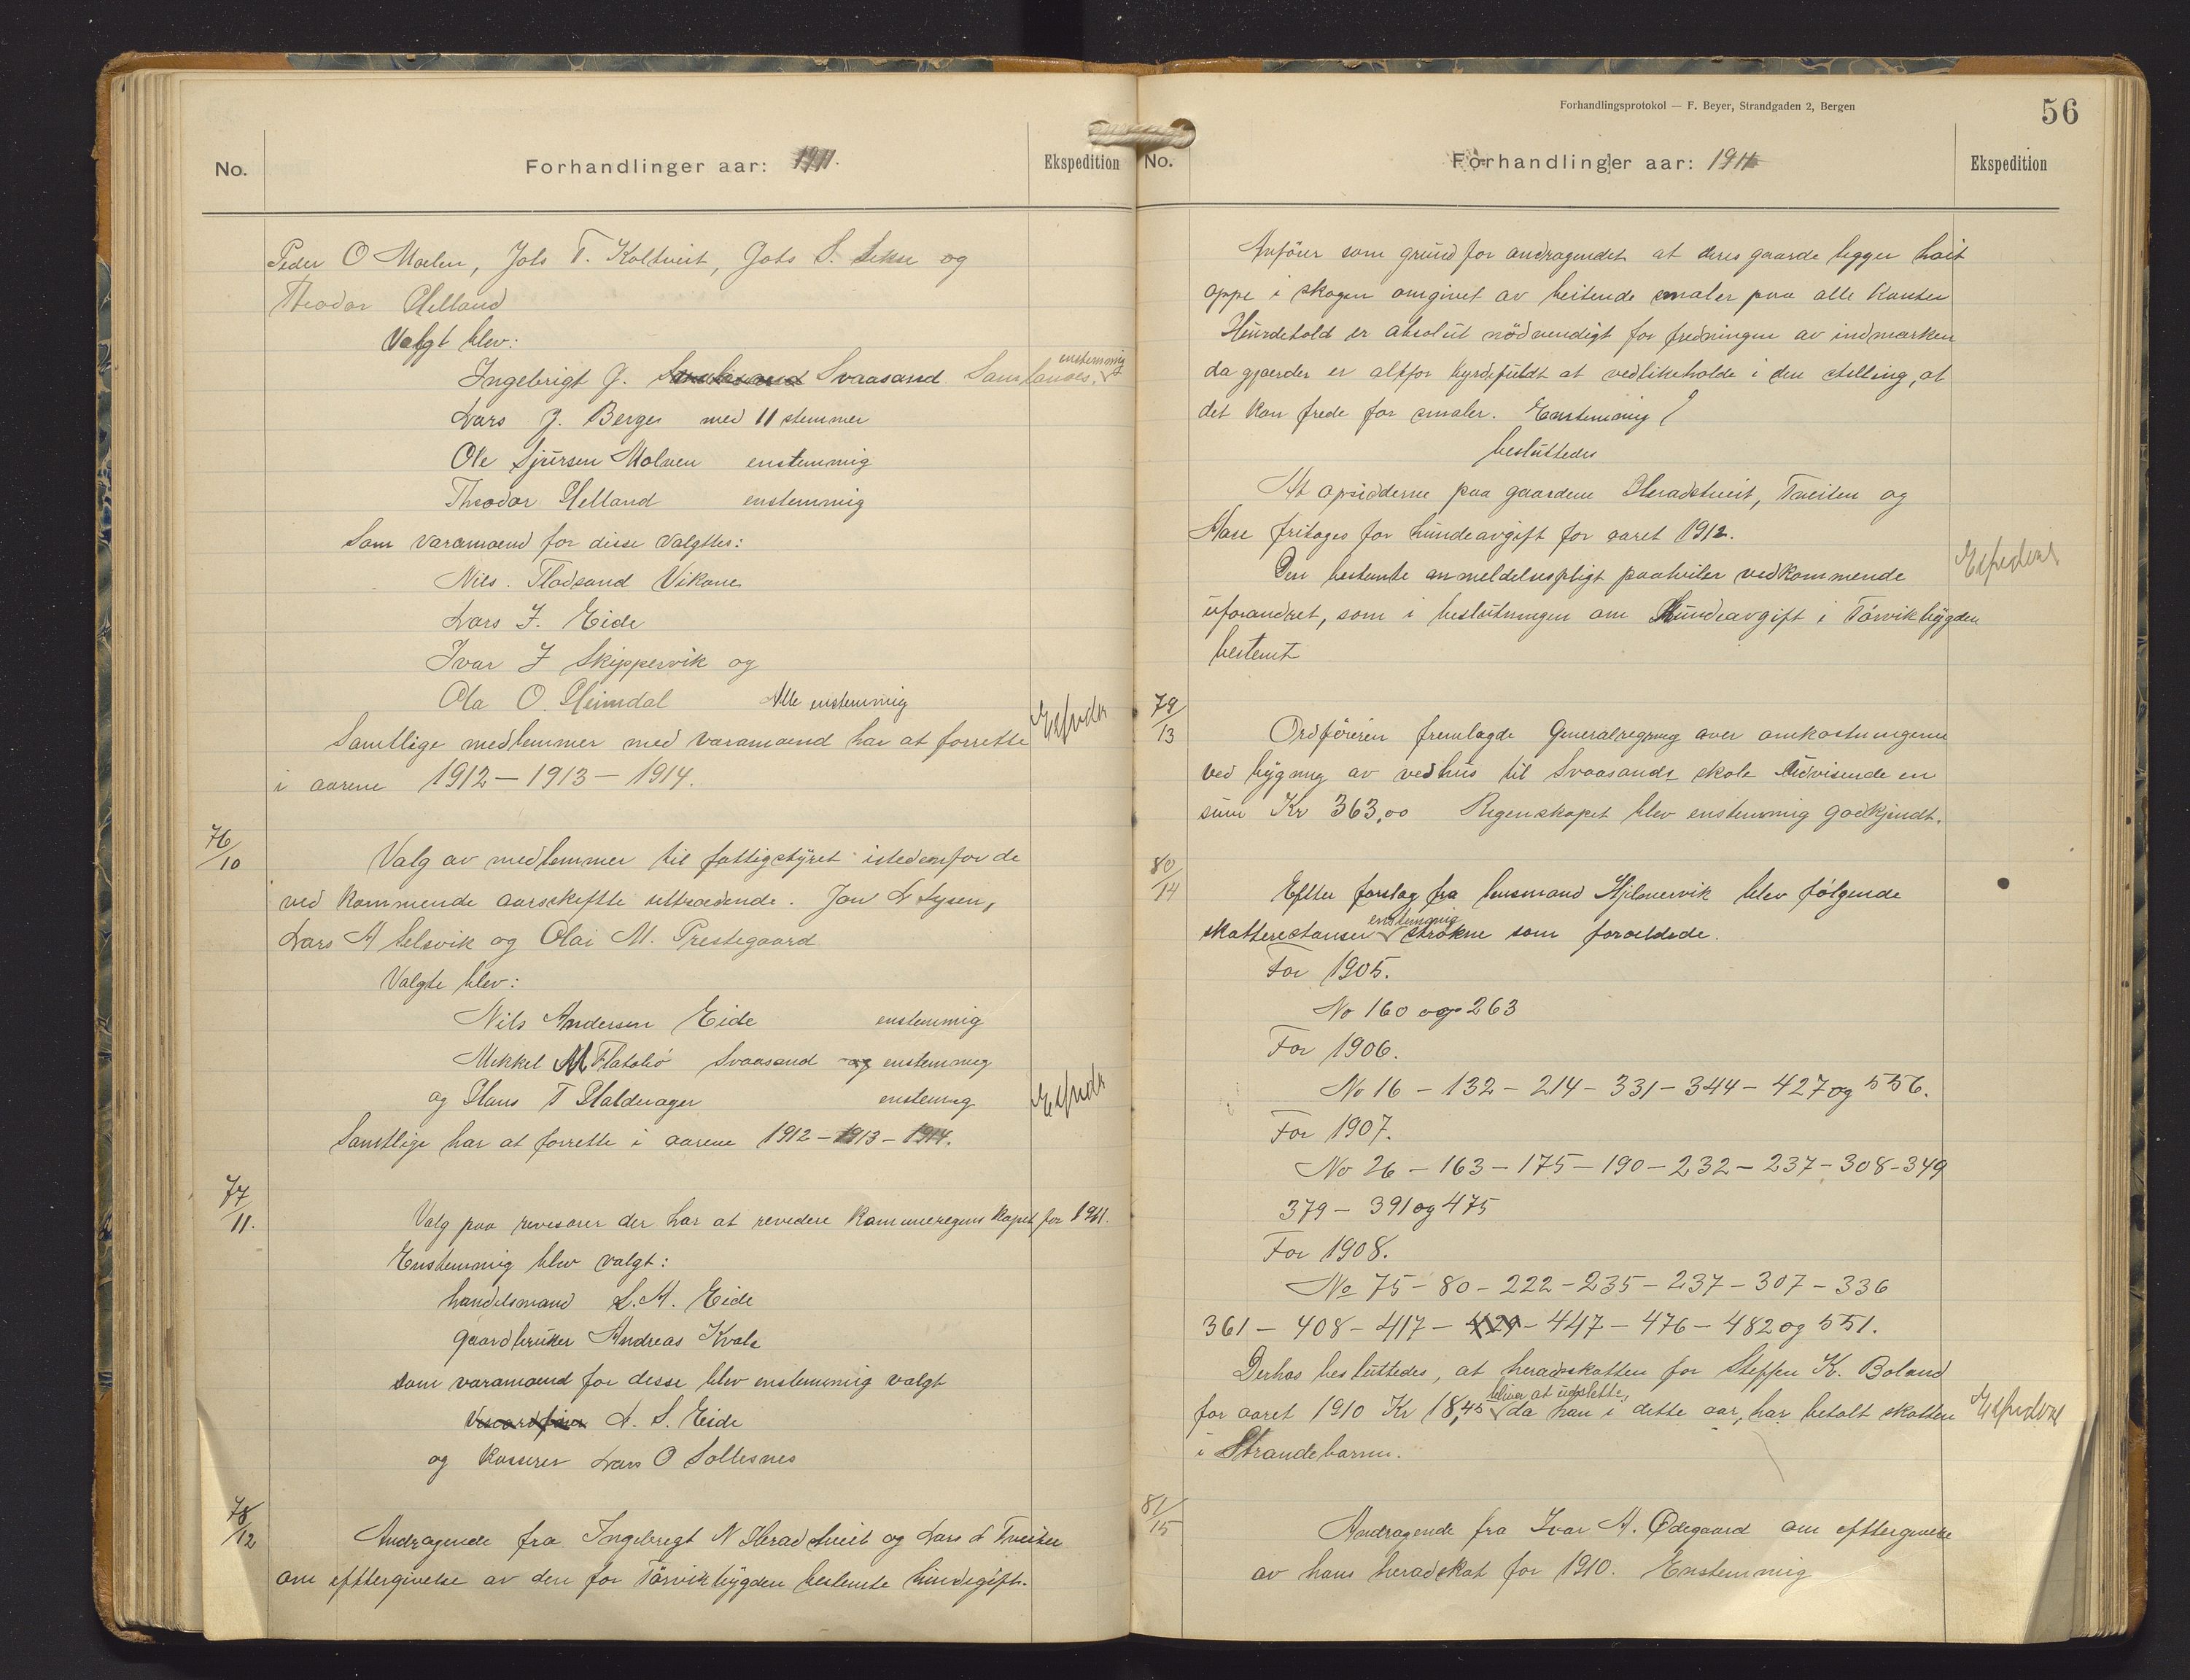 No.
Forhandlinger aar: 1911.
Ekspedition
Peder O Mælen, Johs T. Koltveit, Johs S. Sekse og
Theodor Helland
Valgt blev:
Ingebrigt J. Svaasand Samlanges, enstemmig
Lars J. Berge med 11 stemmer
Ole Sjursen Molven enstemmig
Theodor Helland enstemmig
Som varamænd for disse valgtes:
Nils Flodsand Vikane
Lars J. Eide
Ivar J Skippervik og
Ola O. Heimdal Alle enstemmig
Samtlige medlemmer med varamænd har at forrette
i aarene 1912 – 1913 – 1914.
Ekspedr
76/10
Valg av medlemmer til fattigstyret istedenfor de
ved kommende aarsskefte uttrædende. Jon L Lysen,
Lars A Selsvik og Olai M. Prestegaard
Valgte blev:
Nils Andersen Eide enstemmig
Mikkel M Flatabö Svaasand og enstemmig
og Hans T Haldorager enstemmig
Samtlige har at forrette i aarene 1912 – 1913 – 1914.
Ekspedr
77/11.
Valg paa revisorer der har at revidere kommuneregnskapet for 1911.
Enstemmig blev valgt:
handelsmand L. A. Eide
gaardbruker Andreas Kvale
som varamænd for desse blev enstemmig valgt
A. S. Eide
og kasserer Lars O Soltesnes
78/12
Andragende fra Ingebregt N Heradstveit og Lars L Tveiten
om efttergivelse av den for Törvikbygden bestemte hundegift.
Forhandlingsprotokol — F. Beyer, Strandgaden 2, Bergen
56
No.
Forhandlinger aar: 1911
Ekspedition
Anförer som grund for andragendet at deres gaarde ligger höit
oppe i skogen omgivet av beitende smaler paa alle kanter
Hundehold er absolut nödvendigt for fredningen av indmarken
da gjærder er altfor byrdefuldt at vedlikeholde i den stilling, at
det kan frede for smaler. Enstemmig
besluttedes
At opsidderne paa gaardene Heradstveit, Tveiten og
Aase fritages for hundeavgift for aaret 1912.
Den bestemte anmeldelsespligt paahviler vedkommende
uforandret, som i beslutningen om Hundeavgift i Törvikbygden
bestemt
Ekspedert
79/13
Ordföreren fremlagde Generalregning over omkostningene
ved bygning av vedhus til Svaasands skole udvisende en
sum Kr 363,00 Regenskapet blev enstemmig godkjendt.
80/14
Efter forslag fra lensmand Hjelmervik blev følgende
skatterestanser enstemmig strökne som forældede.
For 1905.
No 160 og 263
For 1906.
No 16 – 132 – 214 – 331 – 344 – 427 og 556.
For 1907.
No 26 – 163 – 175 – 190 – 232 – 237 – 308 – 349
379 – 391 og 475
For 1908.
No 75 – 80 – 222 – 235 – 237 – 307 – 336
361 – 408 – 417 – 429 – 447 – 476 – 482 og 551.
Derhos besluttedes, at heradsskatten for Steffen K. Boland
for aaret 1910 Kr 18,45 bliver at udslette, da han i dette aar, har betalt skatten
i Strandebarm.
Ekspedert
81/15
Andragende fra Ivar A. Ødegaard om efttergivelse
av hans heradskat for 1910. Enstemmig